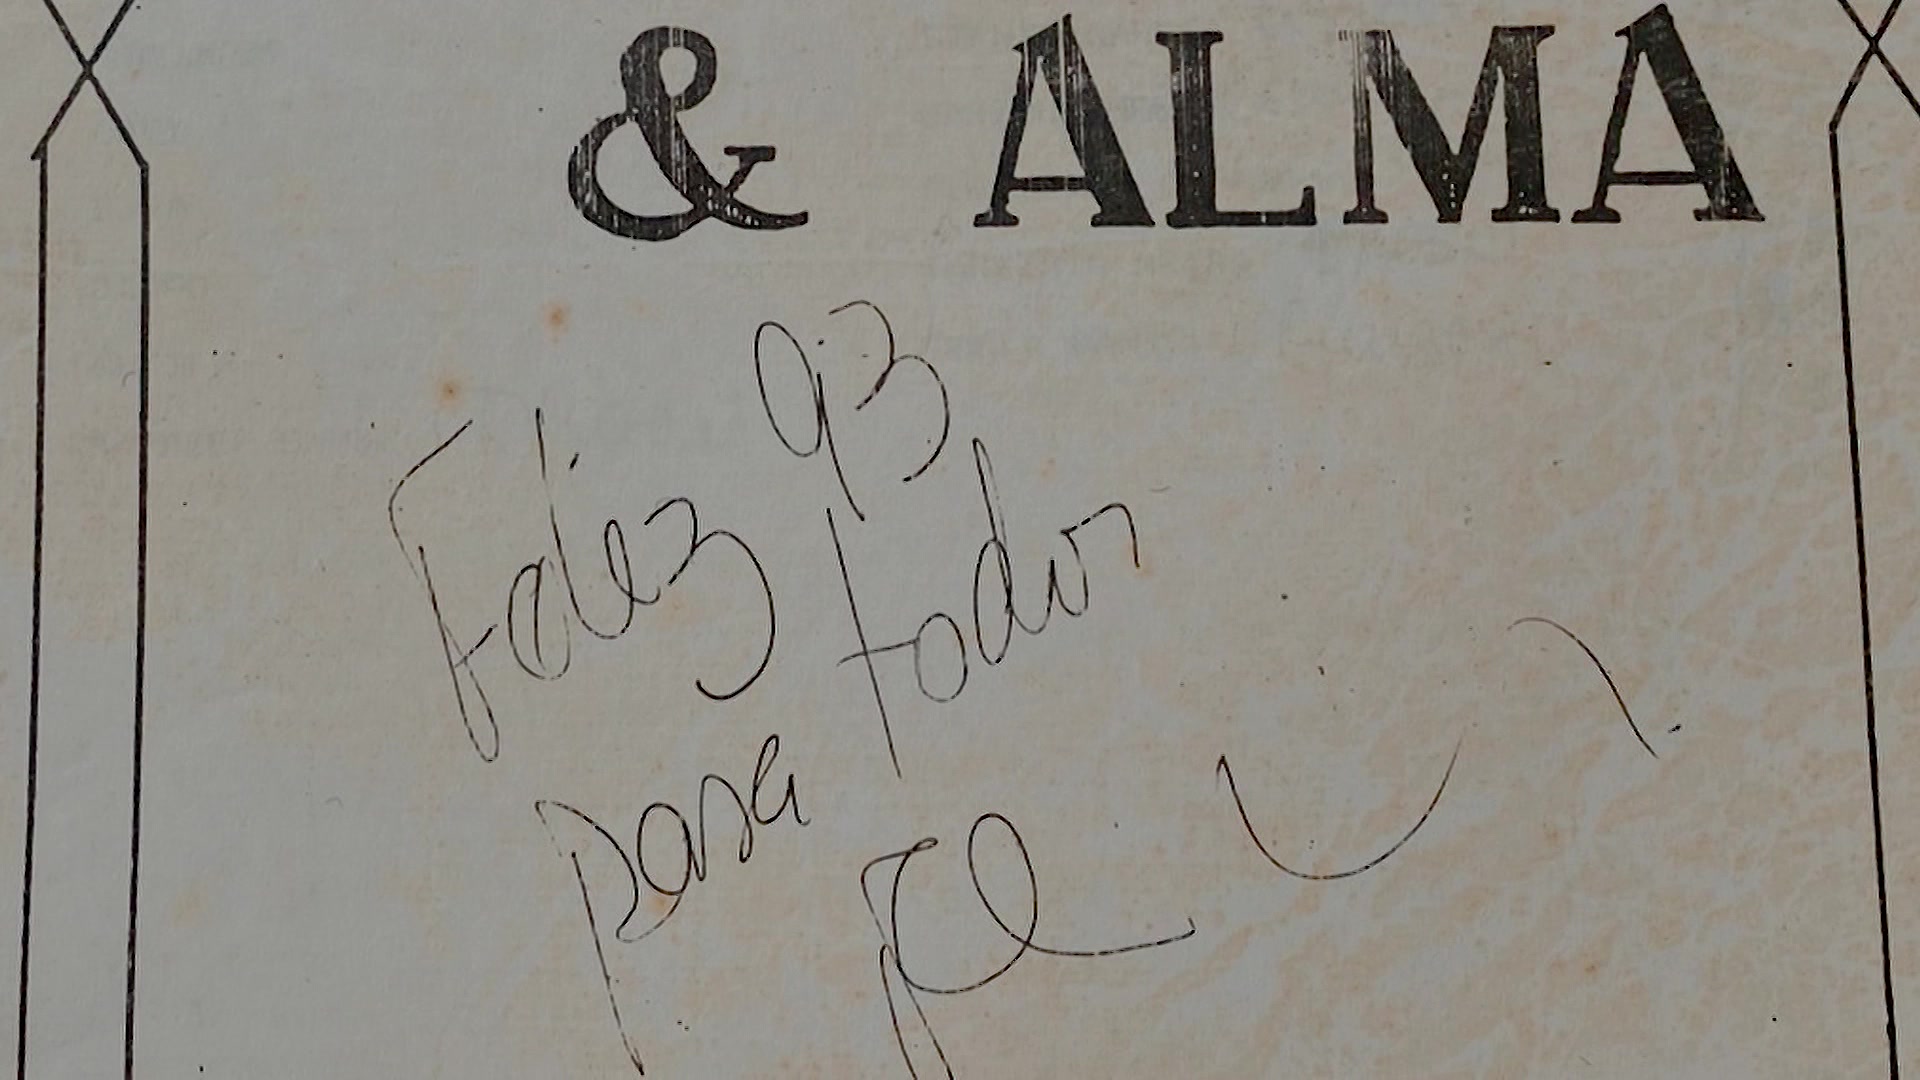 & ALMA
Feliz 93
para todos